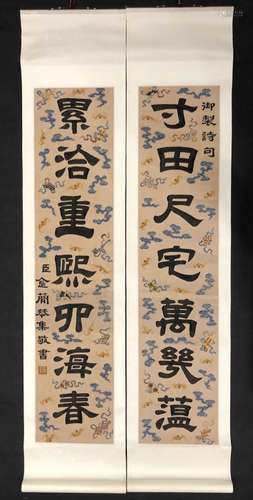 御製詩句
寸田尺宅萬幾蘊
累洽重熙卯海春
臣金蘭琴集敬書